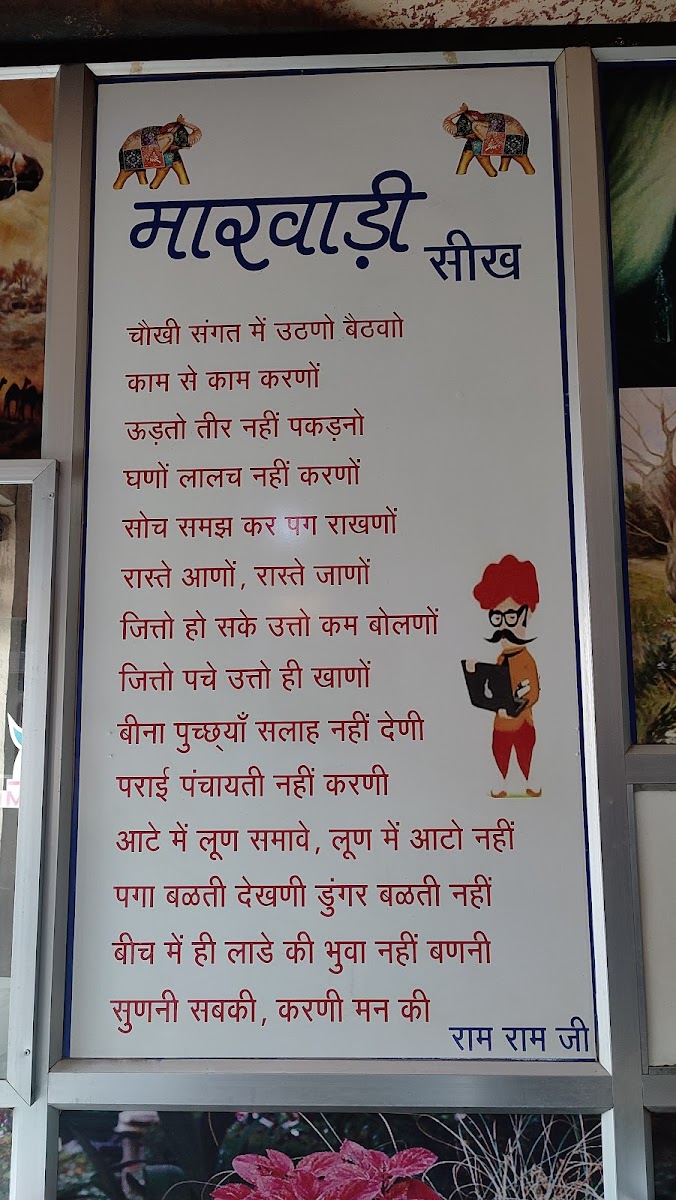 मारवाड़ी
सीख
चौखी संगत में उठणो बैठवाो
काम से काम करणों
ऊड़तो तीर नहीं पकड़नो
घणों लालच नहीं करणों
सोच समझ कर पग राखणों
रास्ते आणों, रास्ते जाणों
जित्तो हो सके उत्तो कम बोलणों
जित्तो पचे उत्तो ही खाणों
बीना पुच्छ्याँ सलाह नहीं देणी
पराई पंचायती नहीं करणी
आटे में लूण समावे, लूण में आटो नहीं
पगा बळती देखणी डुंगर बळती नहीं
बीच में ही लाडे की भुवा नहीं बणनी
सुणनी सबकी, करणी मन की
राम राम जी